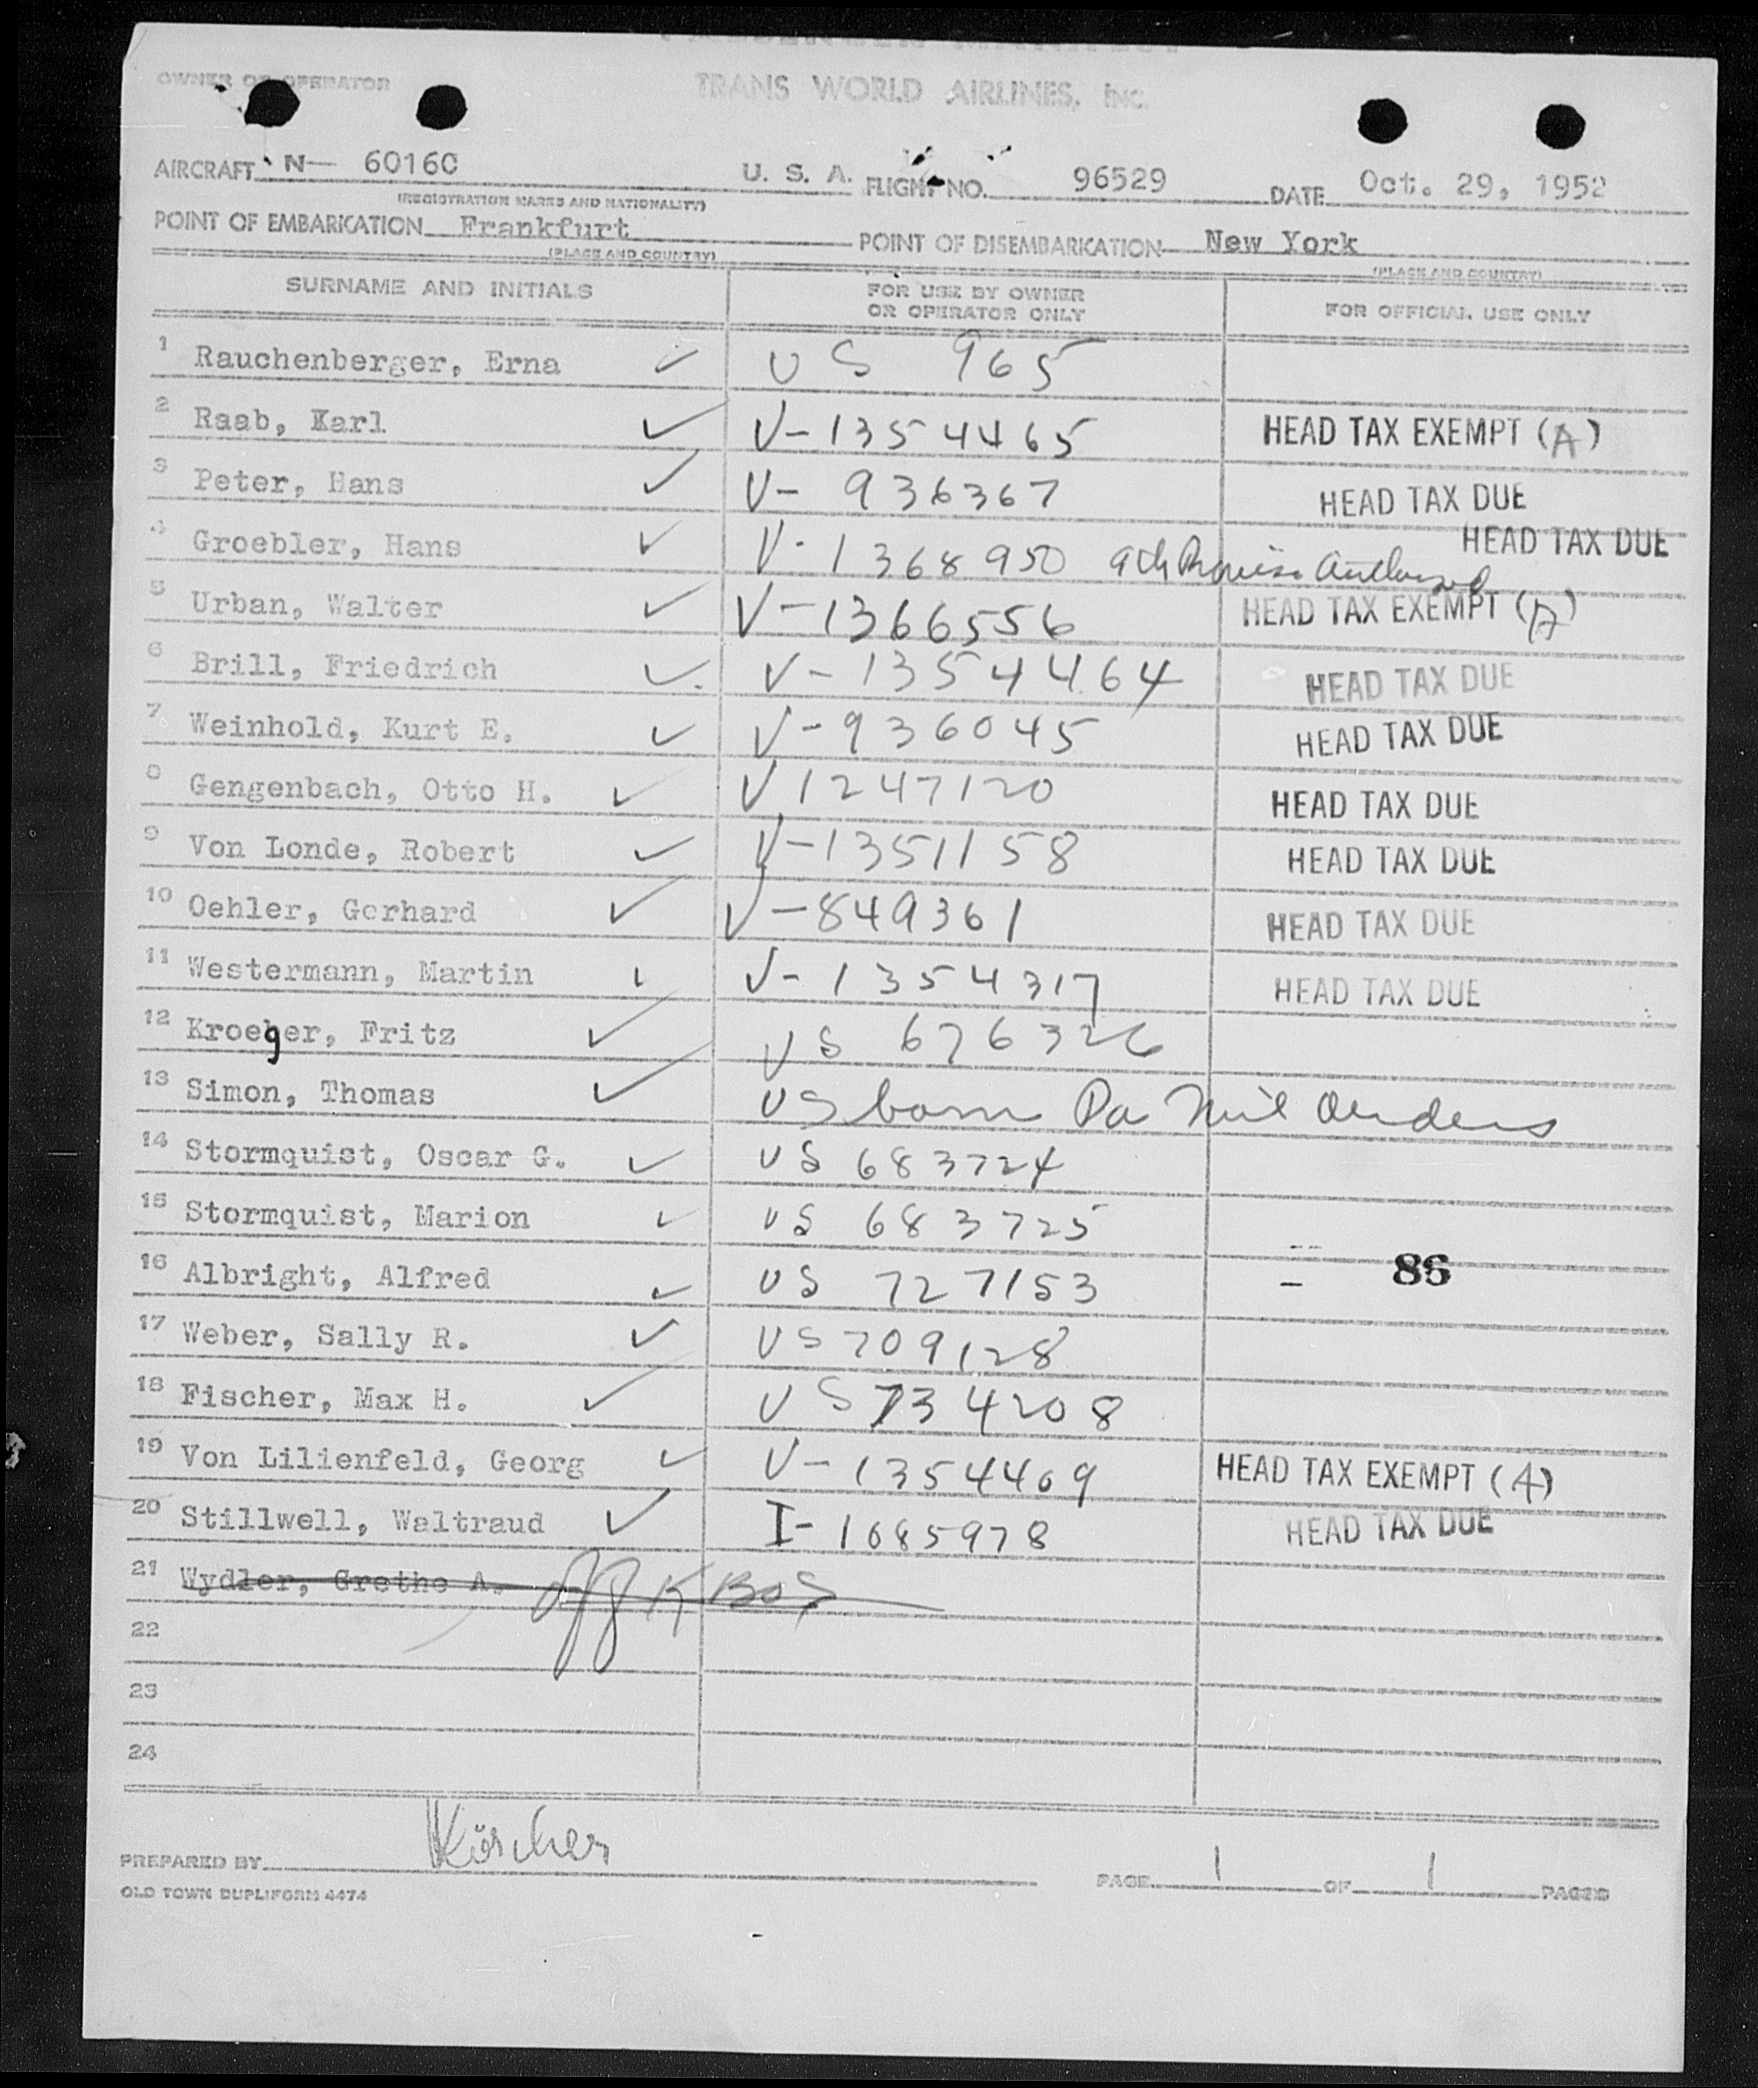 PASSENGER MANIFEST
OWNER OR OPERATOR TRANS WORLD AIRLINES, INC.
AIRCRAFT N— 60160 U. S. A. FLIGHT NO. 96529 DATE Oct. 29, 1952
(REGISTRATION MARKS AND NATIONALITY)
POINT OF EMBARKATION Frankfurt POINT OF DISEMBARKATION New York
(PLACE AND COUNTRY) (PLACE AND COUNTRY)
SURNAME AND INITIALS FOR USE BY OWNER OR OPERATOR ONLY FOR OFFICIAL USE ONLY
1 Rauchenberger, Erna ✓ US 965
2 Raab, Karl ✓ V-1354465 HEAD TAX EXEMPT (A)
3 Peter, Hans ✓ V- 936367 HEAD TAX DUE
4 Groebler, Hans ✓ V-1368950 9th Proviso Authorized HEAD TAX DUE
5 Urban, Walter ✓ V-1366556 HEAD TAX EXEMPT (A)
6 Brill, Friedrich ✓ V-1354464 HEAD TAX DUE
7 Weinhold, Kurt E. ✓ V-936045 HEAD TAX DUE
8 Gengenbach, Otto H. ✓ V1247120 HEAD TAX DUE
9 Von Londe, Robert ✓ V-1351158 HEAD TAX DUE
10 Oehler, Gerhard ✓ V-849361 HEAD TAX DUE
11 Westermann, Martin ✓ V-1354317 HEAD TAX DUE
12 Kroeger, Fritz ✓ US 676326
13 Simon, Thomas ✓ US born Pa Mil Orders
14 Stormquist, Oscar G. ✓ US 683724
15 Stormquist, Marion ✓ US 683725
16 Albright, Alfred ✓ US 727153 - 86
17 Weber, Sally R. ✓ US 709128
18 Fischer, Max H. ✓ US 734208
19 Von Lilienfeld, Georg ✓ V-1354469 HEAD TAX EXEMPT (A)
20 Stillwell, Waltraud ✓ I-1085978 HEAD TAX DUE
21 Wydler, Grethe A. off BOS
22
23
24
PREPARED BY Körcher PAGE 1 OF 1 PAGES
OLD TOWN DUPLIFORM 4474